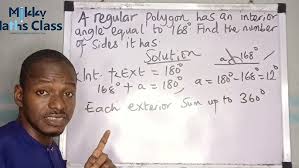 Mikky
Maths Class
A regular Polygon has an interior
angle equal to 168° Find the number
of Sides it has
Solution
∠Int + ∠Ext = 180°
168° + a = 180°
a 168°
a = 180° - 168 = 12°
Each exterior Sum up to 360°